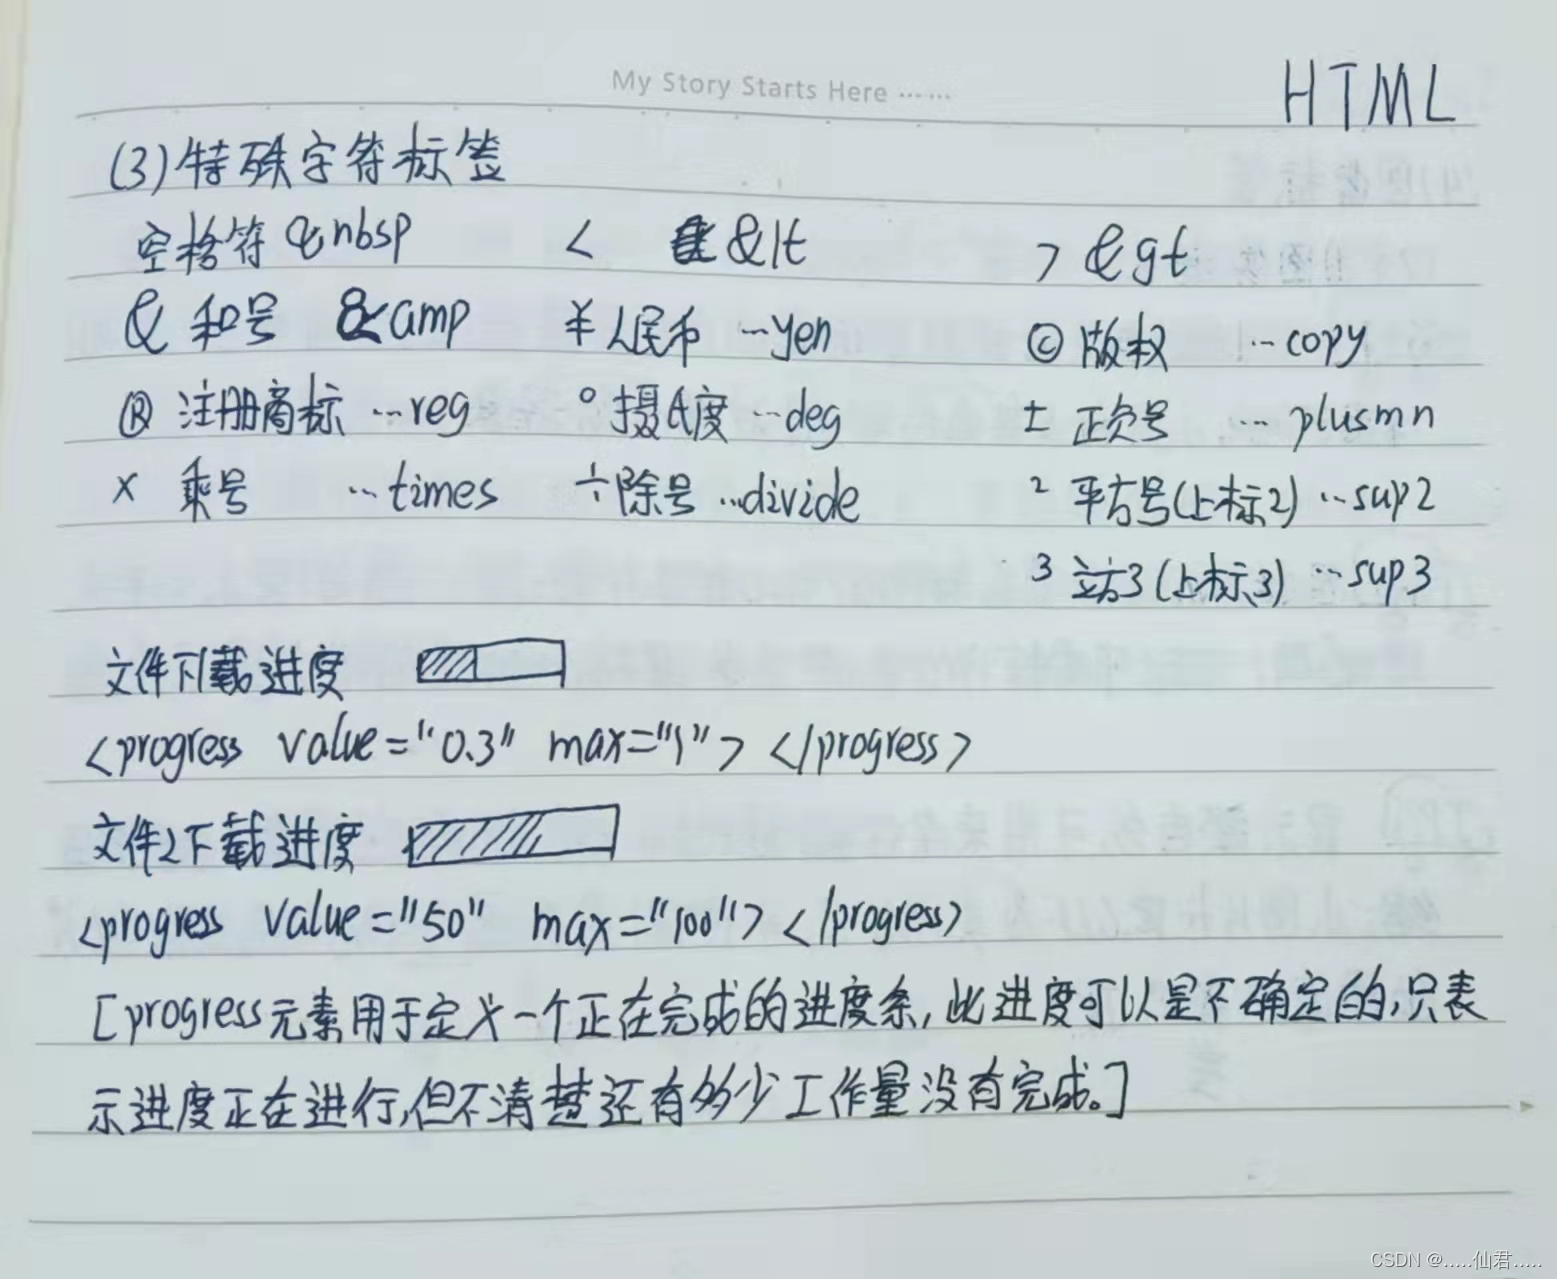 My Story Starts Here ……
HTML
(3)特殊字符标签
空格符 &nbsp < &lt > &gt
& 和号 &amp ¥ 人民币 …yen © 版权 …copy
® 注册商标 …reg ° 摄氏度 …deg ± 正负号 … plusmn
× 乘号 …times ÷ 除号 …divide ² 平方号(上标2) …sup2
³ 立方3(上标3) …sup3
文件下载进度
<progress value="0.3" max="1"> </progress>
文件2下载进度
<progress value="50" max="100"> </progress>
[progress元素用于定义一个正在完成的进度条,此进度可以是不确定的,只表
示进度正在进行,但不清楚还有多少工作量没有完成。]
CSDN @.....仙君.....